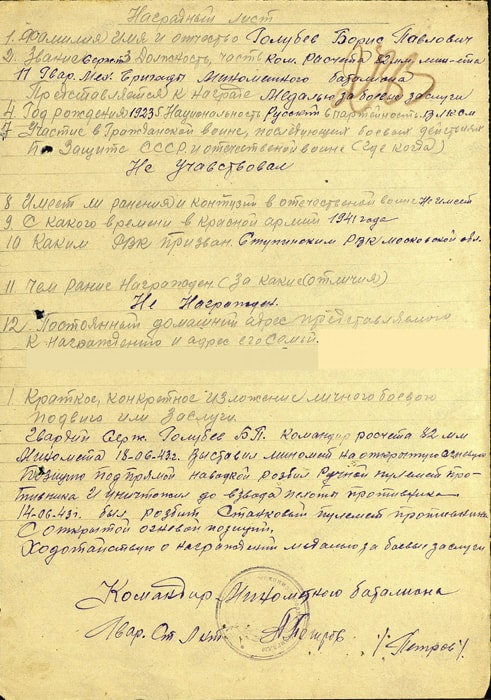 Наградный лист
1. Фамилия Имя и отчество Голубев Борис Павлович
2. Звание Сержт 3 Должность, часть Ком. Расчета 82 мм мин-та
17 Гвар. Мех. Бригады Минометного баталиона
Представляется к награде Медалью за боевые заслуги
4. Год рождения 1923 5 Национальность Русский 6 партейность ВЛКСМ
7 Участие в Гражданской воине, последующих боевых действиям
По Защите СССР и отечественой воине (где когда)
Не Учавствовал
8 Имеет ли ранения и контузии в отечественой воине Не имеет
9 С какого времени в Красной армии 1941 года
10 Каким РВК призван. Ступинским РВК московской обл.
11 Чем рание Награжден (За какие отличия)
Не Награжден.
12. Постоянный домашний адрес представляемого
к награждению и адрес его семьи.
1 Краткое, конкретное изложение личного боевого
подвига или заслуги
Гвардии Серж. Голубев Б.П. командир расчета 82 мм
Миномета 18-06-43г. Выставил миномет на открытую огневую
позицию под прямой наводкой розбил Ручной пулемет про-
тивника и уничтожил до взвода пехоты противника
14-06-43г. был розбит Станковый пулемет противника
С открытой огневой позиции.
Ходотайствую о награждении медалью за боевые заслуги
Командир Минометного баталиона
Гвар. Ст. Лит. Петров /Петров/